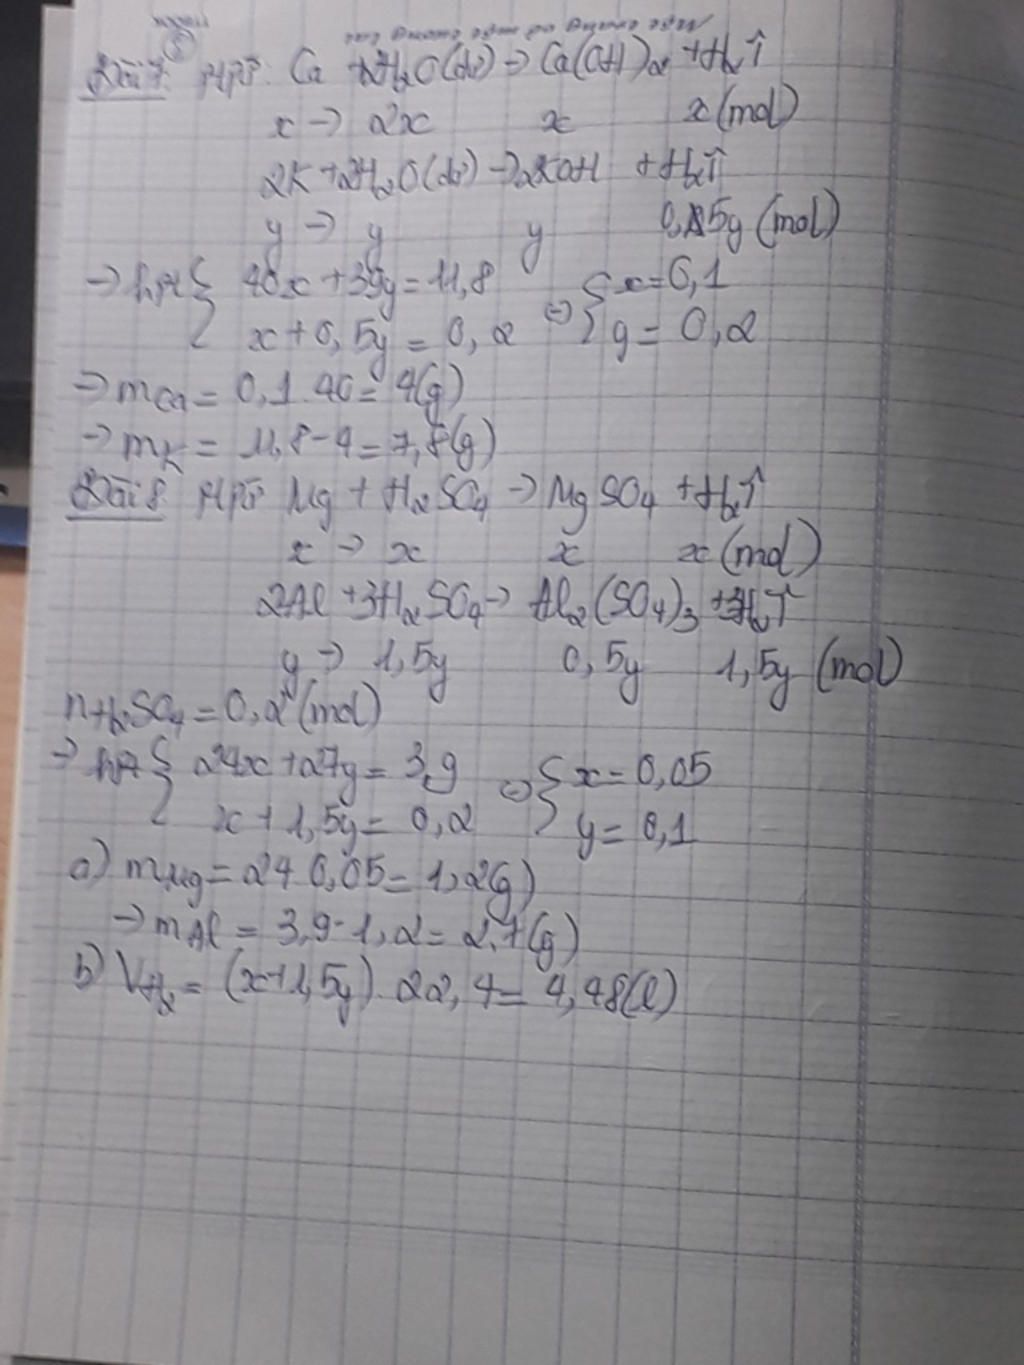 Bài 7: PTPƯ: Ca + 2H₂O(dư) → Ca(OH)₂ + H₂↑
x → 2x x x (mol)
2K + 2H₂O(dư) → 2KOH + H₂↑
y → y y 0,5y (mol)
→ hpt { 40x + 39y = 11,8 ⇔ { x = 0,1
x + 0,5y = 0,2 y = 0,2
→ mCa = 0,1.40 = 4(g)
→ mK = 11,8 - 4 = 7,8(g)
Bài 8 PTPƯ Mg + H₂SO₄ → MgSO₄ + H₂↑
x → x x x (mol)
2Al + 3H₂SO₄ → Al₂(SO₄)₃ + 3H₂↑
y → 1,5y 0,5y 1,5y (mol)
nH₂SO₄ = 0,2 (mol)
→ hpt { 24x + 27y = 3,9 ⇔ { x = 0,05
x + 1,5y = 0,2 y = 0,1
a) mMg = 24.0,05 = 1,2(g)
→ mAl = 3,9 - 1,2 = 2,7(g)
b) VH₂ = (x + 1,5y).22,4 = 4,48(l)